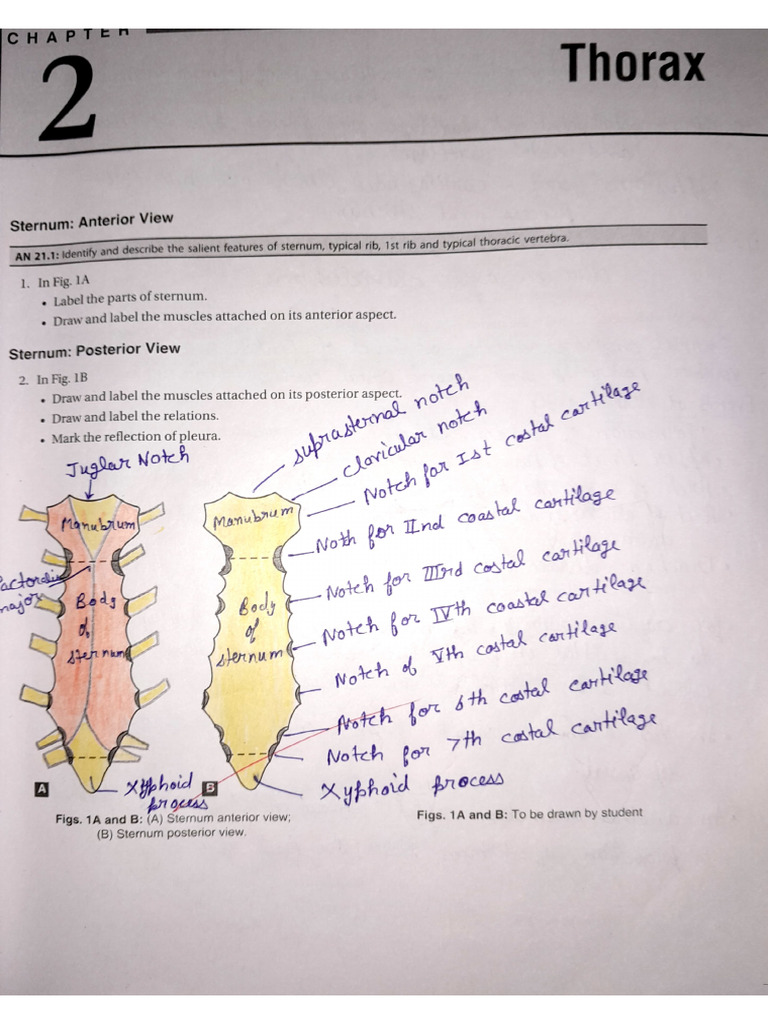 CHAPTER
2
Thorax
Sternum: Anterior View
AN 21.1: Identify and describe the salient features of sternum, typical rib, 1st rib and typical thoracic vertebra.
1. In Fig. 1A
• Label the parts of sternum.
• Draw and label the muscles attached on its anterior aspect.
Sternum: Posterior View
2. In Fig. 1B
• Draw and label the muscles attached on its posterior aspect.
• Draw and label the relations.
• Mark the reflection of pleura.
suprasternal notch
clavicular notch
Notch for Ist costal cartilage
Juglar Notch
Manubrum
Manubrum
Noth for IInd coastal cartilage
Notch for IIIrd costal cartilage
major
Body
of
sternum
Body
of
sternum
Notch for IVth coastal cartilage
Notch of Vth costal cartilage
Notch for 6th costal cartilage
Notch for 7th costal cartilage
Xyphoid
process
Xyphoid process
A
B
Figs. 1A and B: (A) Sternum anterior view;
(B) Sternum posterior view.
Figs. 1A and B: To be drawn by student